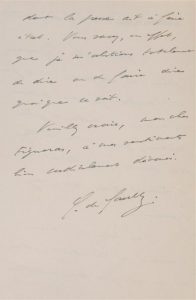 dont la presse ait à faire
état. Vous savez, en effet,
que je m'abstiens totalement
de dire ou de faire dire
quoi que ce soit.
Veuillez croire, mon cher
Figueras, à mes sentiments
bien cordialement dévoués.
C. de Gaulle.